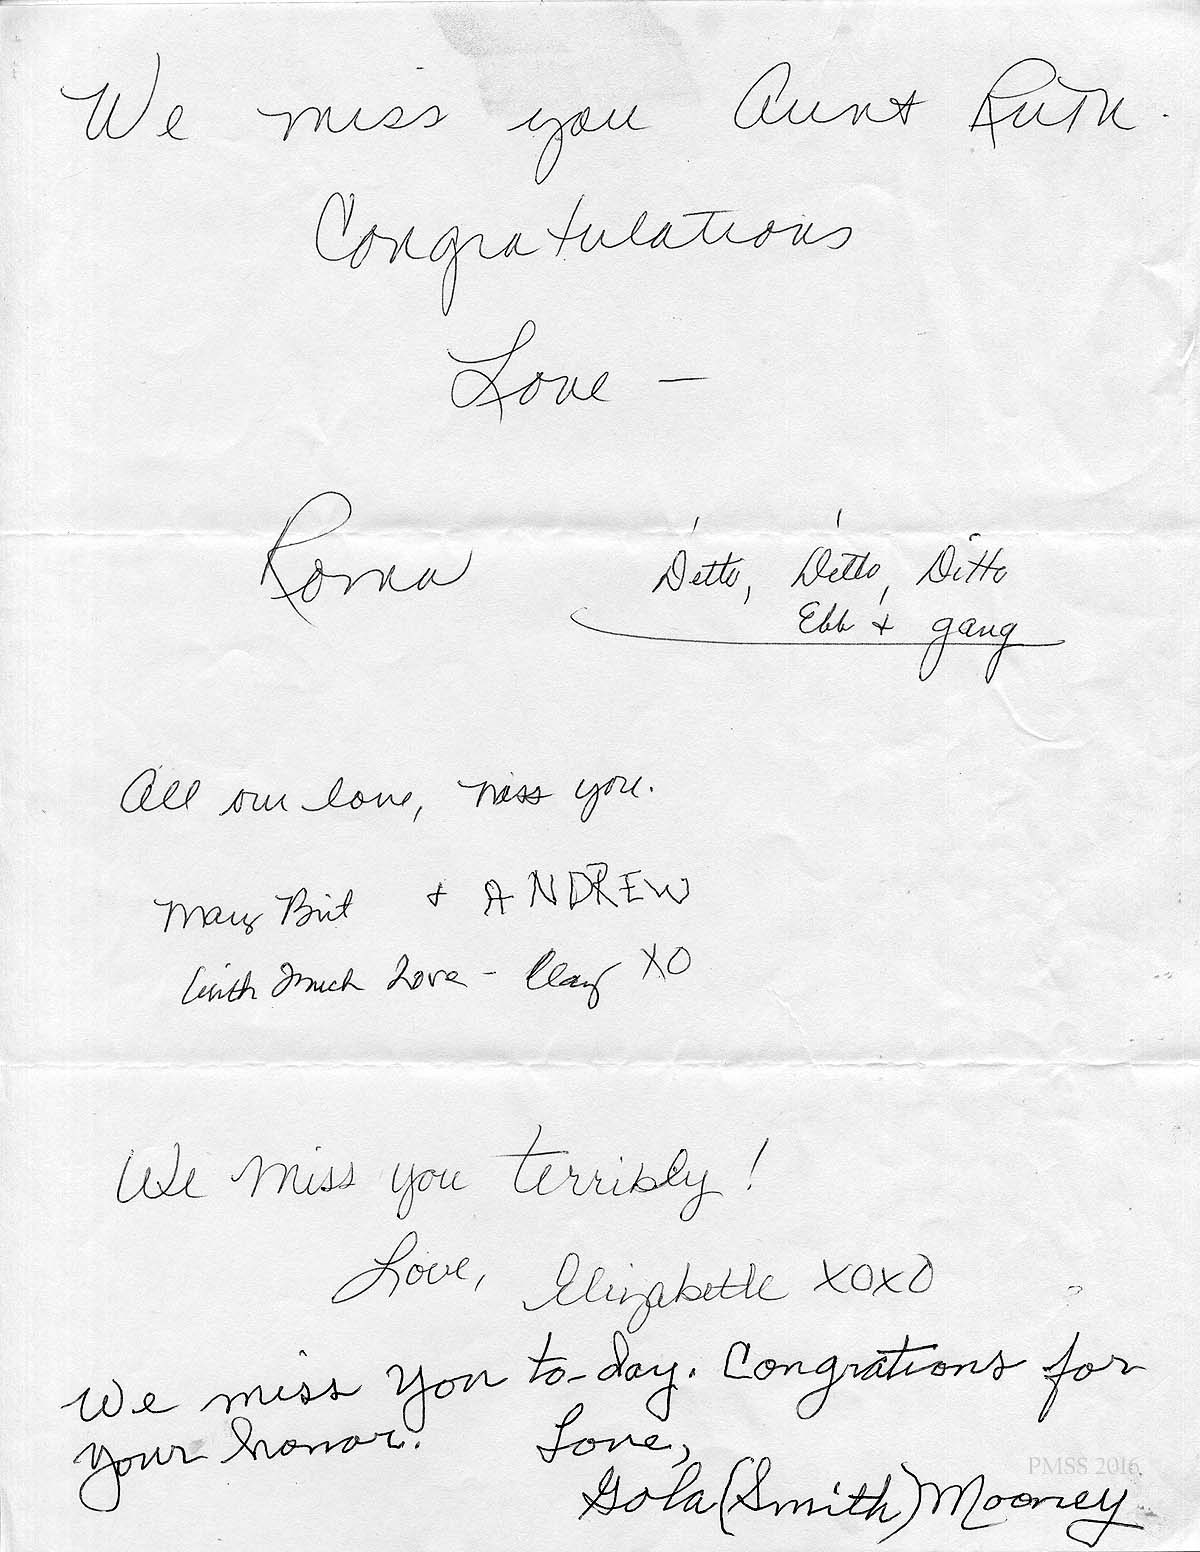 We miss you Aunt Ruth.
Congratulations
Love —
Roma
Ditto, Ditto, Ditto
Ebb & gang
All our love, miss you.
Mary Brit & ANDREW
With Much Love - Clay XO
We miss you terribly!
Love, Elizabeth XOXO
We miss you to-day. Congrations for
your honor. Love,
Gola (Smith) Mooney
PMSS 2016